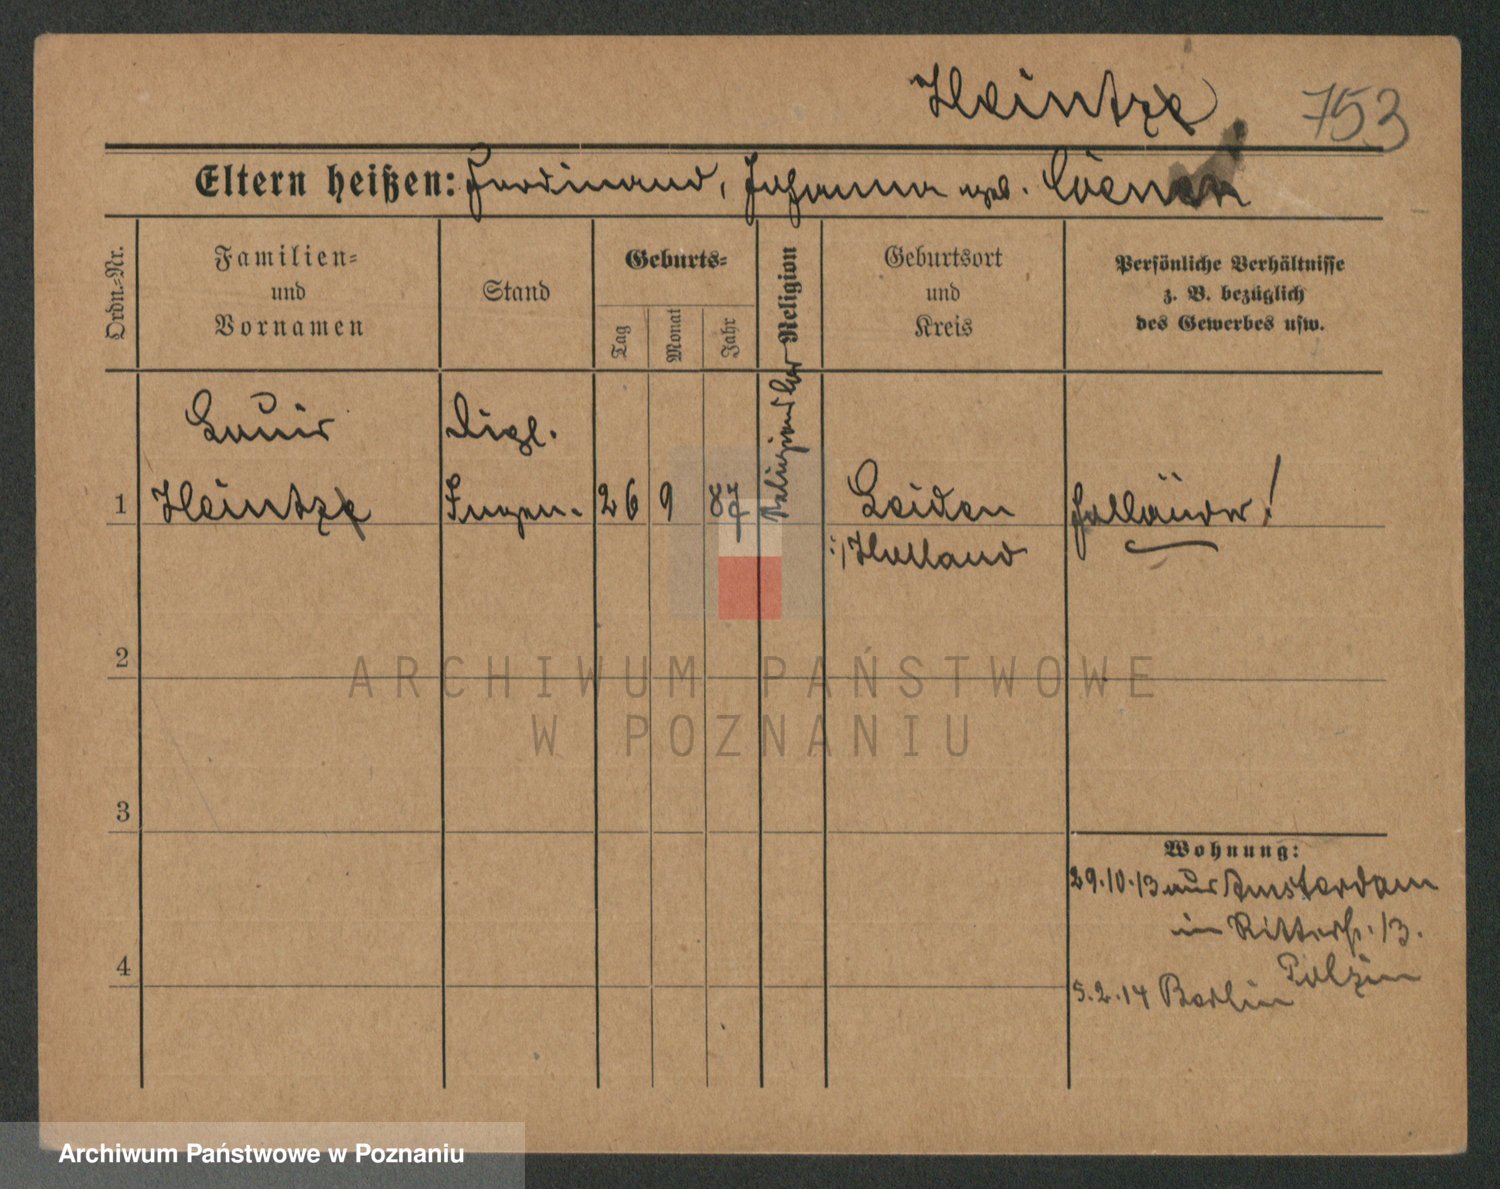 Heintze
753
Eltern heißen: Ferdinand, Johanna geb. Coenen
Ordn.-Nr.
Familien-
und
Vornamen
Stand
Geburts-
Tag
Monat
Jahr
Religion
Geburtsort
und
Kreis
Persönliche Verhältnisse
z. B. bezüglich
des Gewerbes usw.
Louis
Dipl.
1
Heintze
Ingen.
26
9
87
Leiden
Holländer!
Holland
2
3
4
Wohnung:
29.10.13 aus Amsterdam
in Ritterstr. 13.
Polzin
5.2.14 Berlin
ARCHIWUM PAŃSTWOWE
W POZNANIU
Archiwum Państwowe w Poznaniu